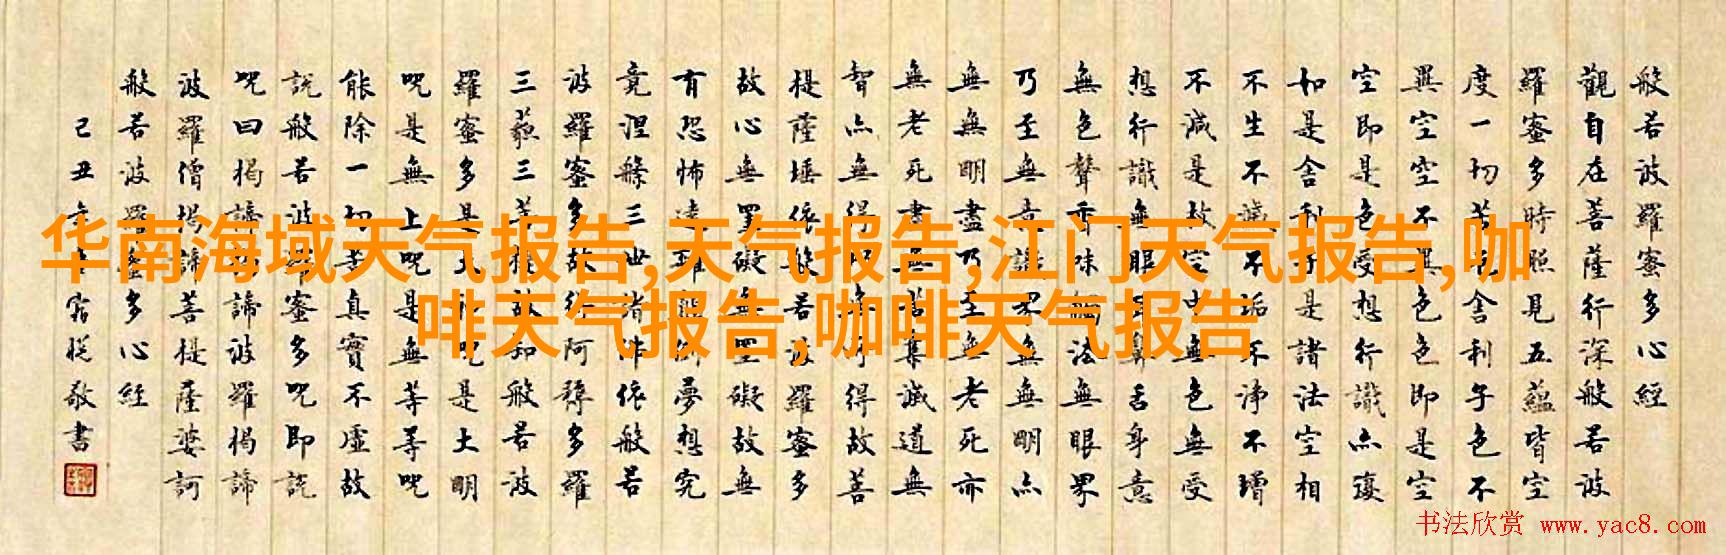 华南海域天气报告,天气报告,江门天气报告,咖
啡天气报告,咖啡天气报告
般若波羅蜜多心經
觀自在菩薩行深般若波
羅蜜多時照見五蘊皆空
度一切苦厄舍利子色不
異空空不異色色即是空
空即是色受想行識亦復
如是舍利子是諸法空相
不生不滅不垢不淨不增
不減是故空中無色無受
想行識無眼耳鼻舌身意
無色聲香味觸法無眼界
乃至無意識界無無明亦
無無明盡乃至無老死亦
無老死盡無苦集滅道無
智亦無得以無所得故菩
提薩埵依般若波羅蜜多
故心無罣礙無罣礙故無
有恐怖遠離顛倒夢想究
竟涅槃三世諸佛依般若
波羅蜜多故得阿耨多羅
三藐三菩提故知般若波
羅蜜多是大神呪是大明
呪是無上呪是無等等呪
能除一切苦真實不虛故
說般若波羅蜜多呪即說
呪曰揭諦揭諦波羅揭諦
波羅僧揭諦菩提薩婆訶
般若波羅蜜多心經
己丑年敬書
书法欣赏 www.yac8.com